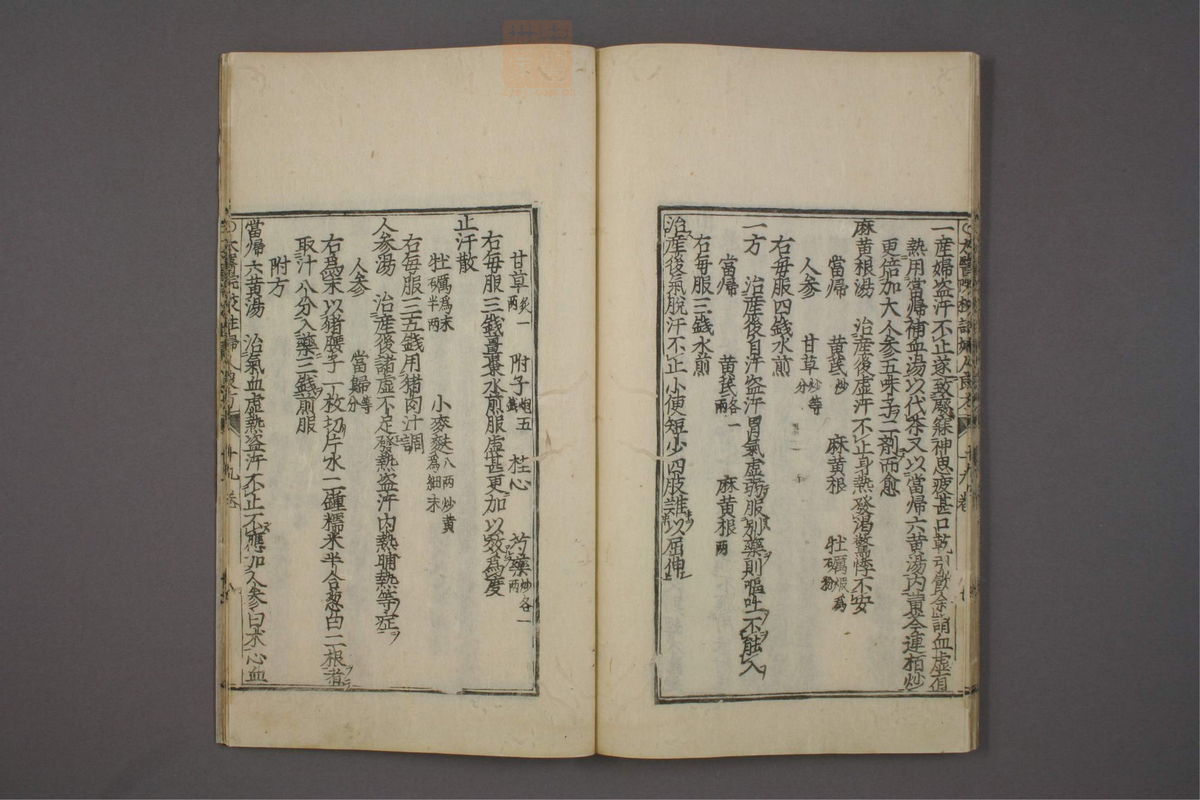 一産婦盗汗不止遂致廢寐神思疲甚口乾引飲余謂血虚有
熱用當帰補血湯以代茶又以當帰六黄湯内黄芩連栢炒
更倍加大人参五味子二剤而愈
麻黄根湯　治産後虚汗不止身熱發渇驚悸不安
當帰　黄芪炒　麻黄根　牡礪煆為粉
人参　甘草炒等分
右毎服四錢水煎
一方　治産後自汗盗汗胃氣虚弱服別藥則嘔吐不能入
當帰　黄芪各一兩　麻黄根兩
右毎服三錢水煎
治産後氣脱汗不止小便短少四肢難以屈伸
甘草炙一兩　附子炮五錢　桂心　芍藥炒各一兩
右毎服三錢薑棗水煎服虚甚更加以效為度
止汗散
牡礪為末半兩　小麥麩八兩炒黄為細末
右毎服三五錢用猪肉汁調
人参湯　治産後諸虚不足發熱盗汗内熱晡熱等症
人参　當歸等分
右為末以猪腰子一枚切片水二鍾糯米半合葱白二根煮
取汁八分入藥三錢煎服
附方
當帰六黄湯　治氣血虚熱盗汗不止不應加人参白朮心血